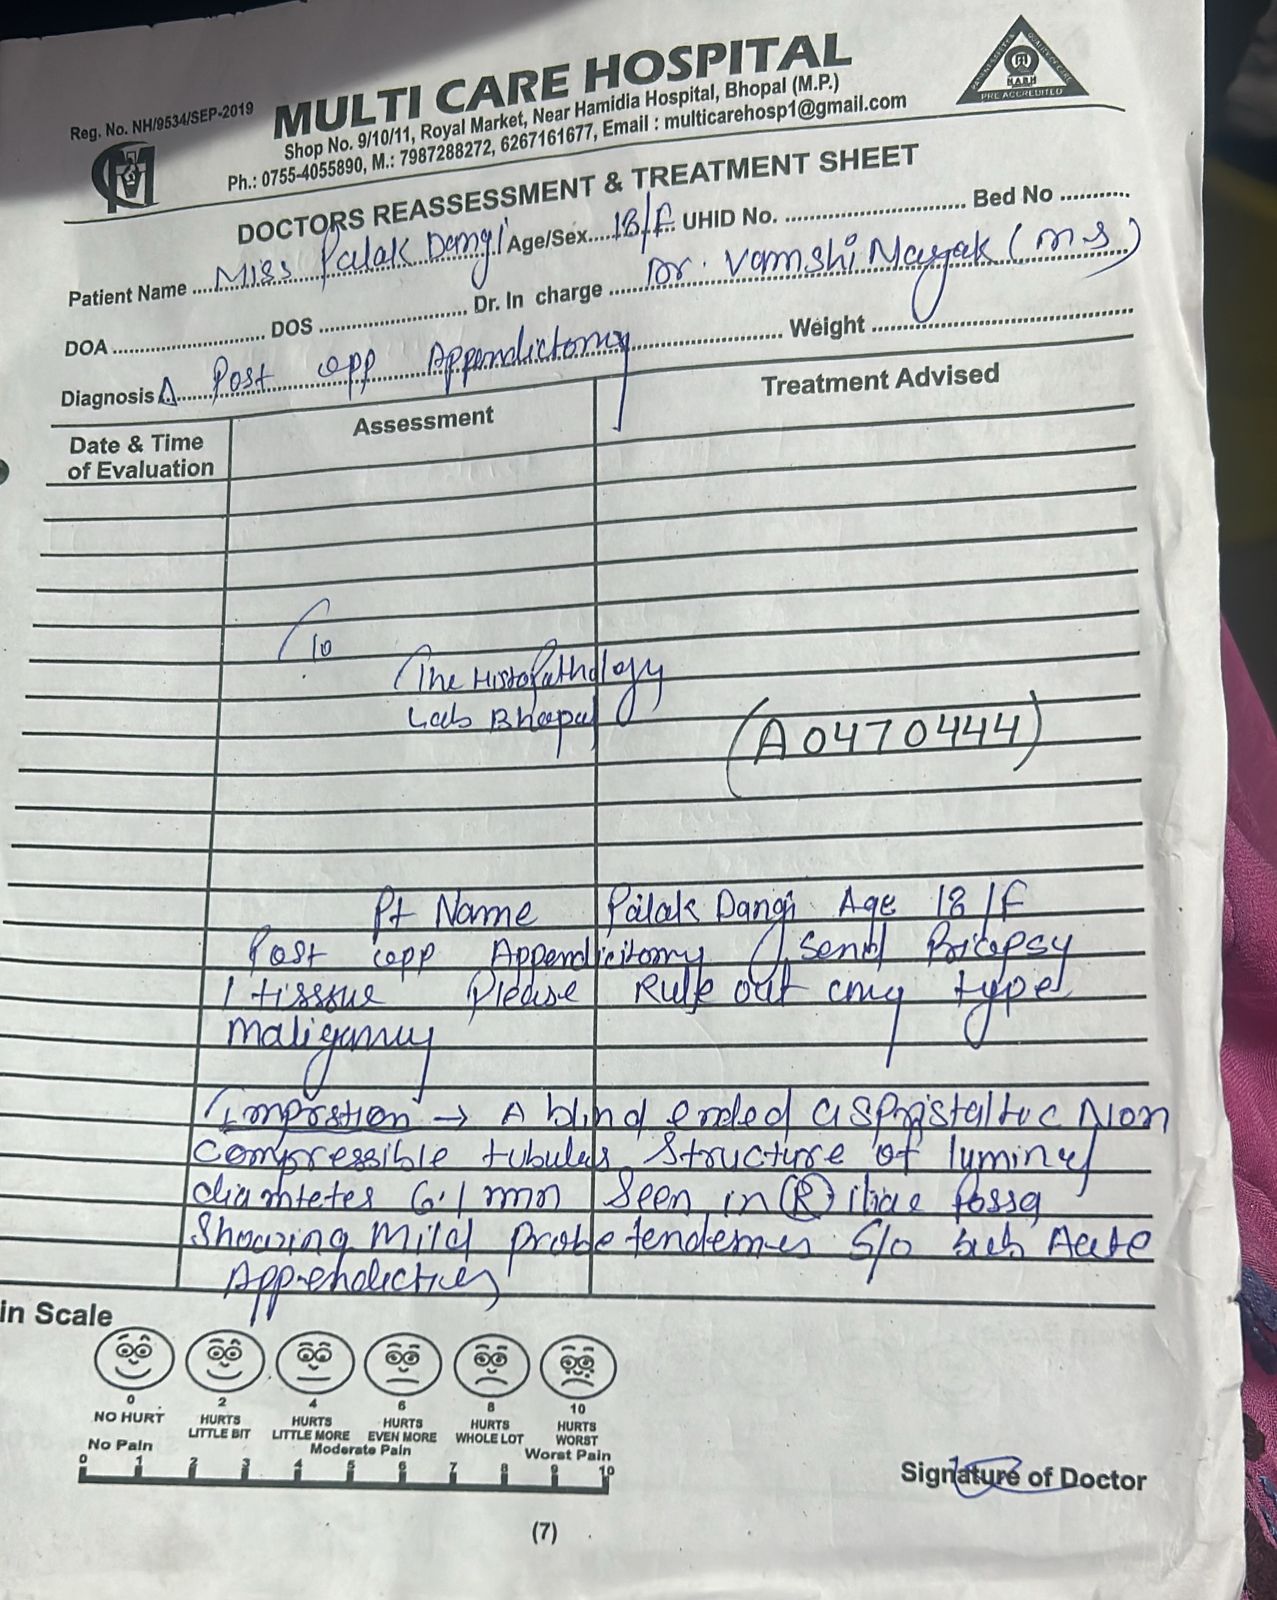 Reg. No. NH/9534/SEP-2019
MULTI CARE HOSPITAL
Shop No. 9/10/11, Royal Market, Near Hamidia Hospital, Bhopal (M.P.)
Ph.: 0755-4055890, M.: 7987288272, 6267161677, Email : multicarehosp1@gmail.com
NABH
PRE ACCREDITED
DOCTORS REASSESSMENT & TREATMENT SHEET
Patient Name Miss Palak Dangi Age/Sex 18/F UHID No. Bed No
DOA DOS Dr. In charge Dr. Vamshi Nayak (ms)
Diagnosis Δ Post opp Appendictomy Weight
Date & Time of Evaluation Assessment Treatment Advised
To
The Histopathology
Lab Bhopal
(A0470444)
Pt Name Palak Dangi Age 18/F
Post opp Appendicitomy Send Bicopsy
1 tisssue Please Rule out any type
maligamy
Imprstion → A blind ended asphistaltuc Non
Compressible tubules Structure of luminel
diamtetes 6.1 mm Seen in (R) iliae fossa
Showing Mild probe tenderness S/o sub Acute
Appendicties
in Scale
0 2 4 6 8 10
NO HURT HURTS LITTLE BIT HURTS LITTLE MORE HURTS EVEN MORE HURTS WHOLE LOT HURTS WORST
No Pain Moderate Pain Worst Pain
0 1 2 3 4 5 6 7 8 9 10
Signature of Doctor
(7)